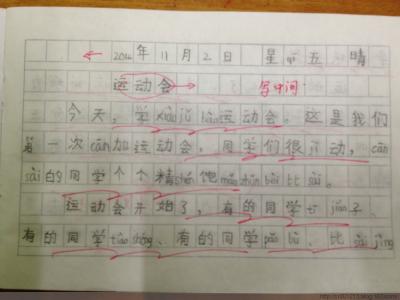 2014年11月2日 星qī五 晴
运动会 写中间
今天，学xiào jǔ bàn运动会。这是我们
一次cān加运动会。同学们很jī动，cān
sài的同学个个精shén饱mǎn zhǔn bèi bǐ sài。
运动会开始了，有的同学tī jiàn子、
有的同学tiào shéng、有的同学pǎo bù、比sài jīng